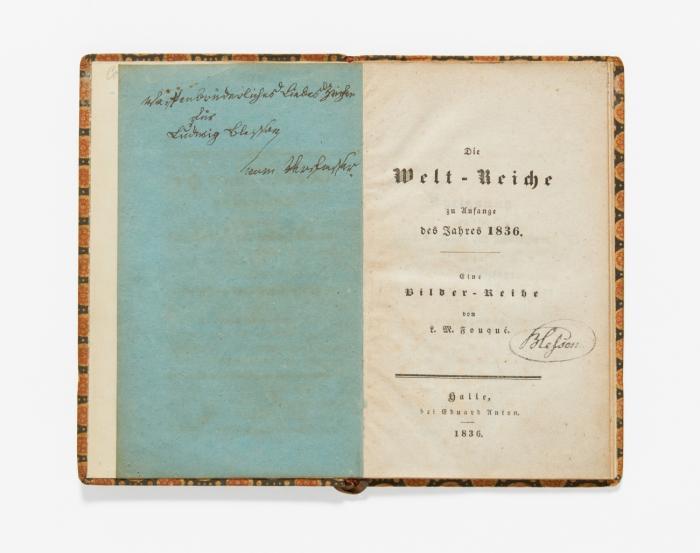 Waffenbrüderliches Liebes Zeichen
für
Ludwig Blesson
vom Verfasser.
Die
Welt-Reiche
zu Anfange
des Jahres 1836.
Eine
Bilder-Reihe
von
L. M. Fouqué.
Blesson
Halle,
bei Eduard Anton.
1836.